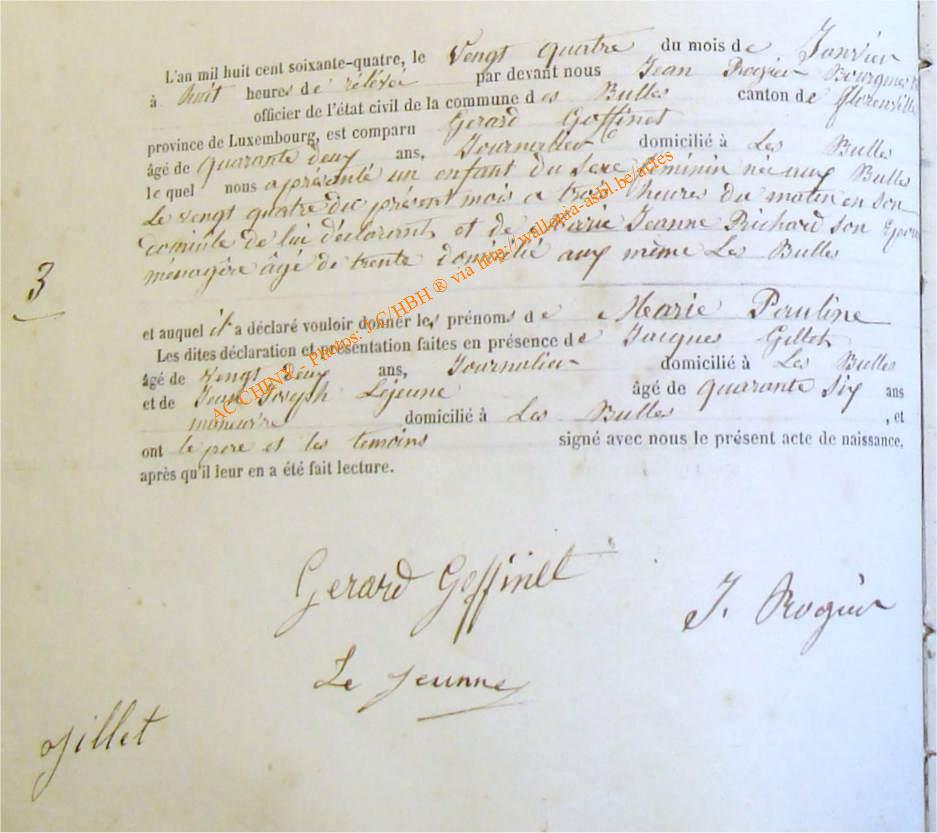 L'an mil huit cent soixante-quatre, le Vengt quatre du mois de Janvier
à huit heures de rélévé par devant nous Jean Rogier Bourgmes
officier de l'état civil de la commune des Bulles canton de florenville
province de Luxembourg, est comparu Gerard Goffinet
âgé de quarante deux ans, Journalier domicilié à Les Bulles
le quel nous a présenté un enfant du sexe féminin née aux Bulles
Le vengt quatre du présent mois a trois heures du matin en son
domicile de lui déclarant et de Marie Jeanne Prichard son Epouse
ménagère âgé de trente domicilié aux même Les Bulles
3
et auquel il a déclaré vouloir donner les prénoms de Marie Pauline
Les dites déclaration et présentation faites en présence de Jacques Gillet
âgé de vengt deux ans, Journalier domicilié à Les Bulles
et de Jean Joseph Léjeune âgé de quarante six ans
maneuvre domicilié à Les Bulles , et
ont le pere et les temoins signé avec nous le présent acte de naissance,
après qu'il leur en a été fait lecture.
AC CHINY - Photos: J.C/HBH ® via http://wallonia-asbl.be/actes
Gerard Goffinet
J. Rogier
Le jeunne
gillet